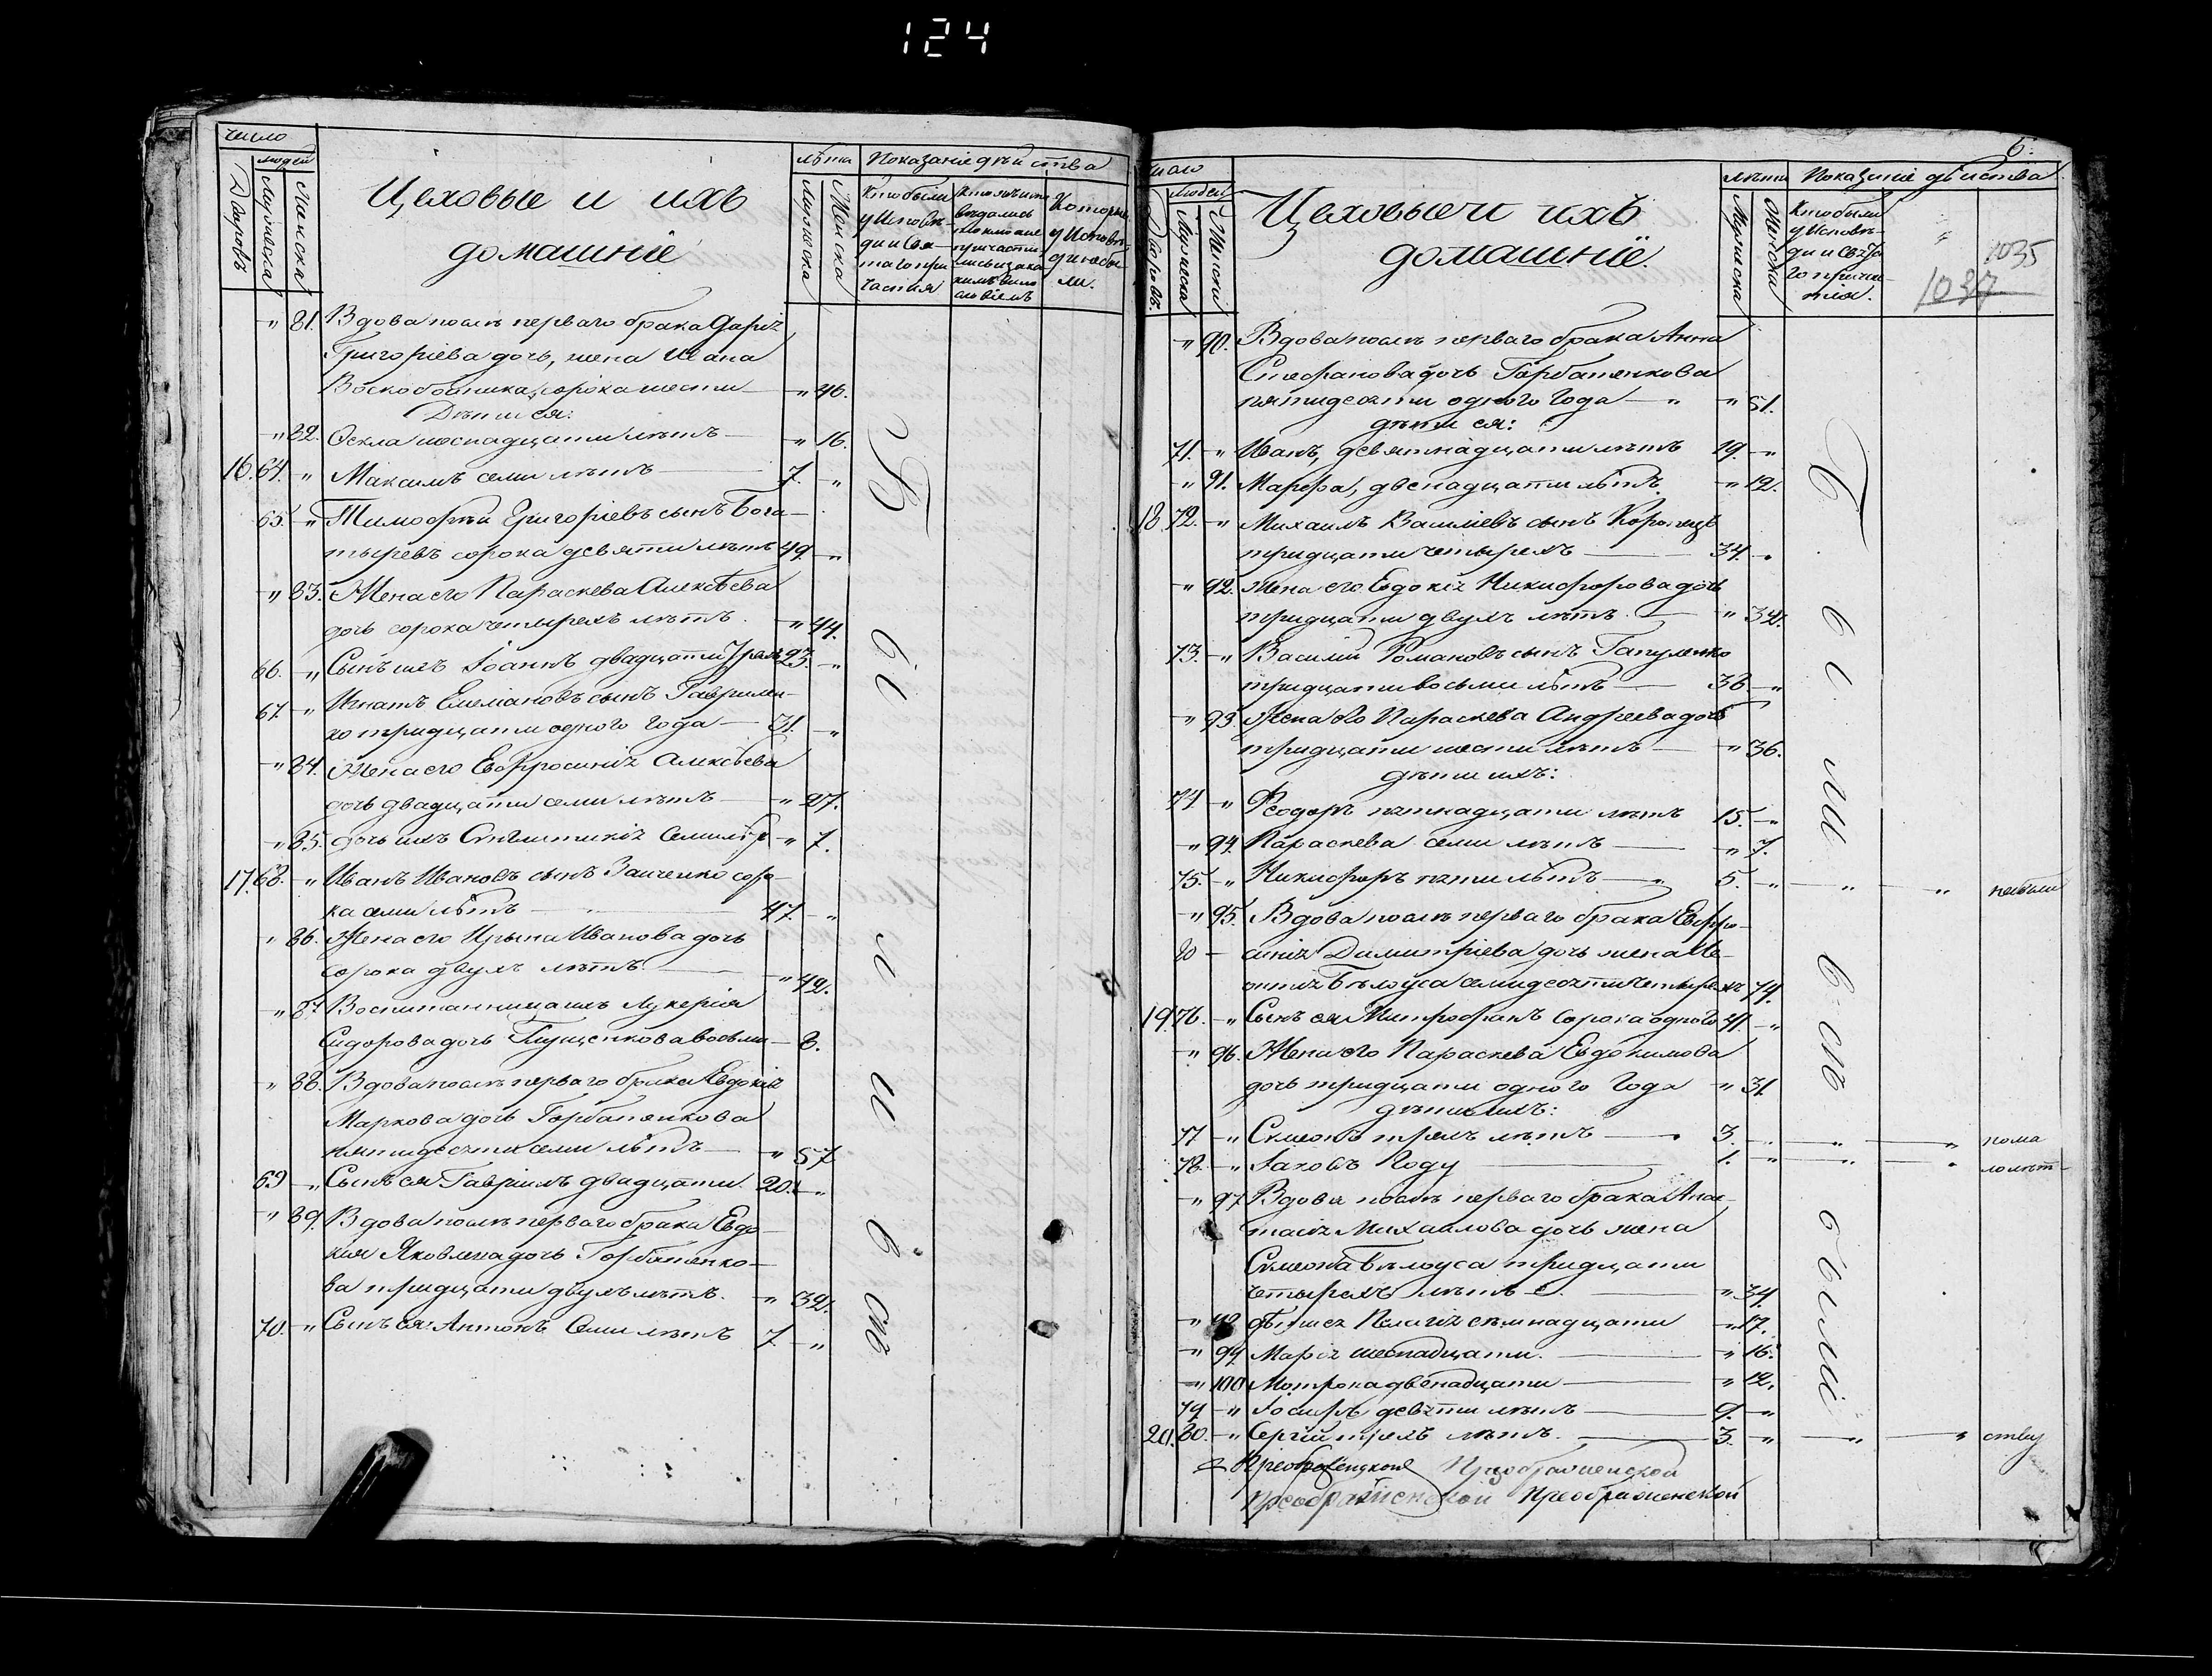 124
число
людей
Дворовъ
Мужеска
Женска
Цеховые и ихъ
домашніе
лѣта
Мужеска
Женска
Показаніе дѣйства
Кто были
у Исповѣ-
ди и Свя-
таго при
частія
Которые
у Исповѣ-
ди не бы
ли.
" 81. Вдова послѣ перваго брака Дарія
Григоріева дочь, жена Ивана
Воскобойника, сорока шести — " 46.
Дѣти ея:
" 82. Ѳекла шеснадцати лѣтъ — " 16.
16. 64. " Максимъ семи лѣтъ — 7. "
65. " Тимофѣй Григоріевъ сынъ Бога-
тыревъ сорока девяти лѣтъ 49. "
" 83. Жена его Параскева Алексѣева
дочь сорока четырехъ лѣтъ. " 44.
66. " Сынъ ихъ Іоаннъ двадцати трехъ 23. "
67. " Игнатъ Емеліановъ сынъ Гаврилен-
ко тридцати одного года — 31. "
" 84. Жена его Евфросинія Алексѣева
дочь двадцати семи лѣтъ — " 27.
" 85. дочь ихъ " 7.
17. 68. " Иванъ Ивановъ сынъ Заиченко соро-
ка семи лѣтъ — 47. "
" 86. Жена его Ирына Иванова дочь
сорока двухъ лѣтъ. — " 42.
" 87 Воспитанница ихъ Лукерія
Сидорова дочь восьми — 8.
" 88. Вдова послѣ перваго брака Евдокія
Маркова дочь Горбатенкова
пятидесяти семи лѣтъ — " 57
69 " Сынъ ея Гавріилъ двадцати. 20. "
" 89. Вдова послѣ перваго брака Евдо-
кия Яковлева дочь Горбатенко-
ва тридцати двухъ лѣтъ. " 32.
70. " Сынъ ея: Антонъ Семи лѣтъ 7 "
6.
число
людей
Дворовъ
Мужеска
Женска
Цеховые и ихъ
домашніе.
лѣта
Мужеска
Женска
Показаніе дѣйства
Кто были
у Исповѣ-
ди и Свята
го прича-
стія.
1035
1037
" 90. Вдова послѣ перваго брака Анна
Стефанова дочь Горбатенкова
пятидесяти одного Года — " " 51.
дѣти ея:
71. " Иванъ, девятнадцати лѣтъ 19. "
" 91. Марфа, двенадцати лѣтъ. " 12.
18 72. " Михаилъ Василіевъ сынъ
тридцати четырехъ — 34. "
" 92. Жена его Евдокія Никифорова дочь
тридцати двухъ лѣтъ. — " 32.
73. " Василій Романовъ сынъ
тридцати восьми лѣтъ — 38 "
" 93 Жена его Параскева Андреева дочь
тридцати шести лѣтъ — " 36.
дѣти ихъ:
74 " Ѳеодоръ пятнадцати лѣтъ 15. "
" 94. Параскева семи лѣтъ — " 7.
75. " Никифоръ пяти лѣтъ — " 5. " " " небыли
" 95. Вдова послѣ перваго брака Евфро-
синія Димитріева дочь жена Ле-
онтія Бѣлоуса семидесяти четырехъ 74.
19. 76. " Сынъ ея Митрофанъ сорока одного 41. "
" 96. Жена его Параскева Евдокимова
дочь тридцати одного Года " 31.
дѣти ихъ:
77 " Симеонъ трехъ лѣтъ — 3. " " " пома
78. " Іаковъ Году — 1. " " " лолѣт-
" 97 Вдова послѣ перваго брака Анас-
тасія Михаилова дочь жена
Симеона Бѣлоуса тридцати
четырехъ лѣтъ — " 34.
" 98 Пелагія семнадцати " 17.
" 99 Марія шеснадцати. — " 16.
" 100 Мотрона двенадцати — " 12.
79 " Іосифъ девяти лѣтъ — 9. "
20. 80. " Сергій трехъ лѣтъ. — 3. " " " ству
Преображенской Преображенской
Преображенской Преображенской